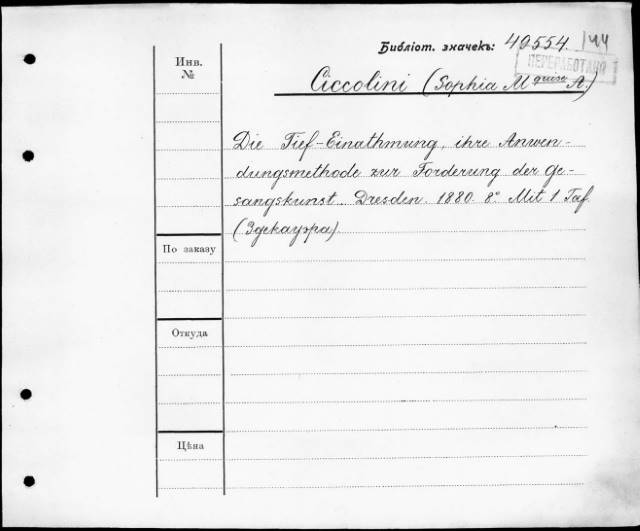 Библіот. значекъ: 40554 / 44
ПЕРЕРАБОТАНО
Инв.
№
Ciccolini (Sophia Mquise A.)
Die Tief-Einathmung, ihre Anwen-
dungsmethode zur Forderung der Ge-
sangskunst. Dresden. 1880. 8º Mit 1 Taf.
(Эдекауэра).
По заказу
Откуда
Цѣна